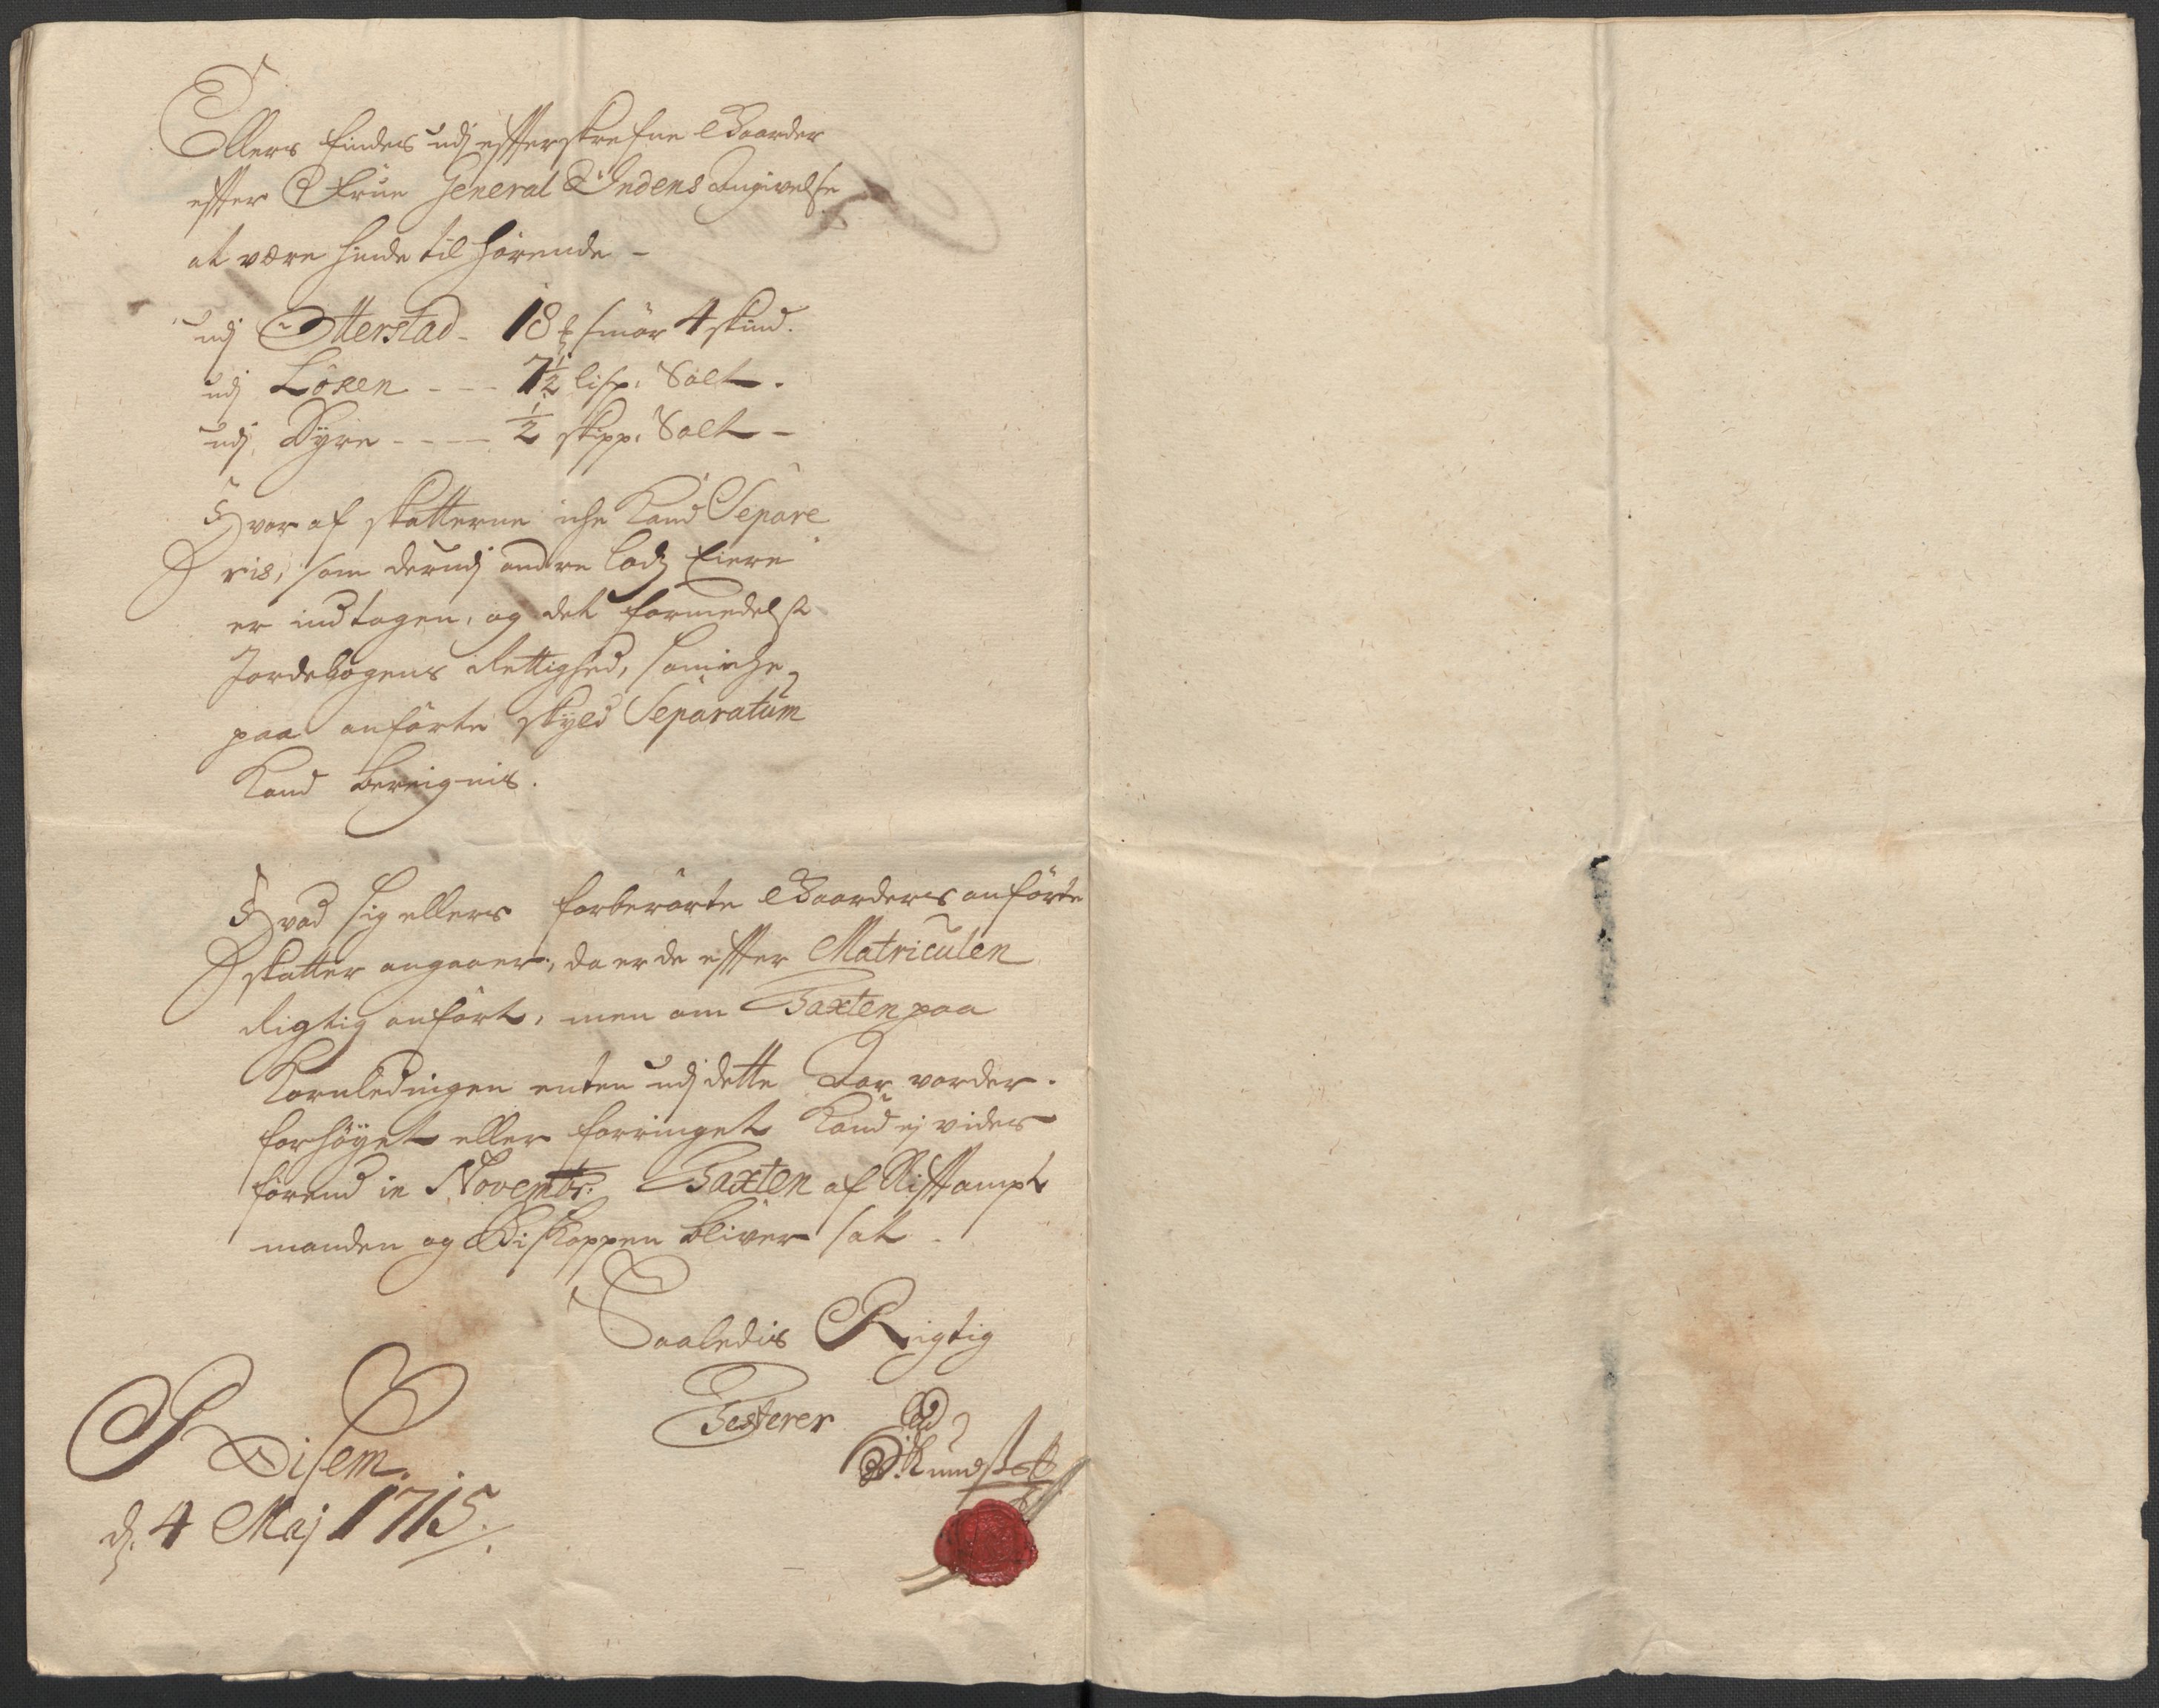 Ellers findes udj efterskrefne Gaarder
efter Frue General Ÿndens Angivelse
at være hinde til hörende -
udj Otterstad - 18 ℔ smör 4 skind.
udj Löken - - - 7½ lisp: Salt.
udj Dÿre - - - - ½ skipp: Salt -
Hvor af skatterne iche kand Separe
ris, som derudj andre lods Eiere
er indtagen, og det formedelst
Jordebogens Rettighed, som iche
paa anförte skÿld Separatum
kand bereignis.
Hvad sig ellers forberörte Gaarders anförte
skatter angaaer, da er de efter Matriculen
Rigtig anfört, men om Taxten paa
Kornledingen enten udj dette Aar vorder
forhöÿet eller forringet kand ej vides
förend in Novembr: Taxten af Stiftampt
manden og Biskoppen bliver sat.
Saaledis Rigtig
Testerer
Disem.
d. 4 Maj 1715.